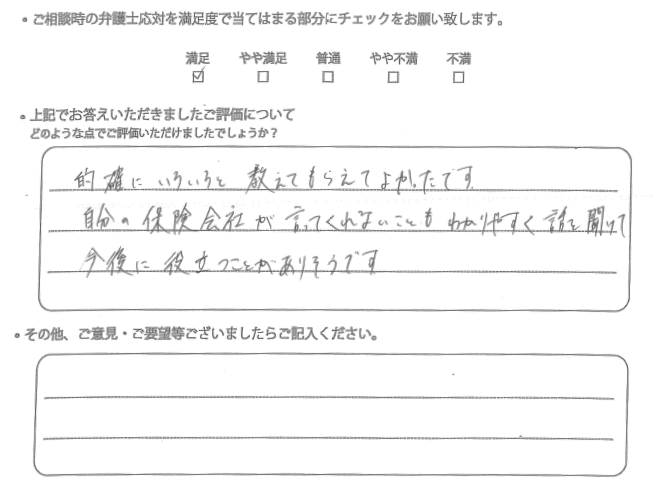 • ご相談時の弁護士応対を満足度で当てはまる部分にチェックをお願い致します。
満足 やや満足 普通 やや不満 不満
☑ ☐ ☐ ☐ ☐
• 上記でお答えいただきましたご評価について
どのような点でご評価いただけましたでしょうか?
的確にいろいろと教えてもらえてよかったです
自分の保険会社が言ってくれないこともわかりやすく話を聞けて
今後に役立つことがありそうです
• その他、ご意見・ご要望等ございましたらご記入ください。